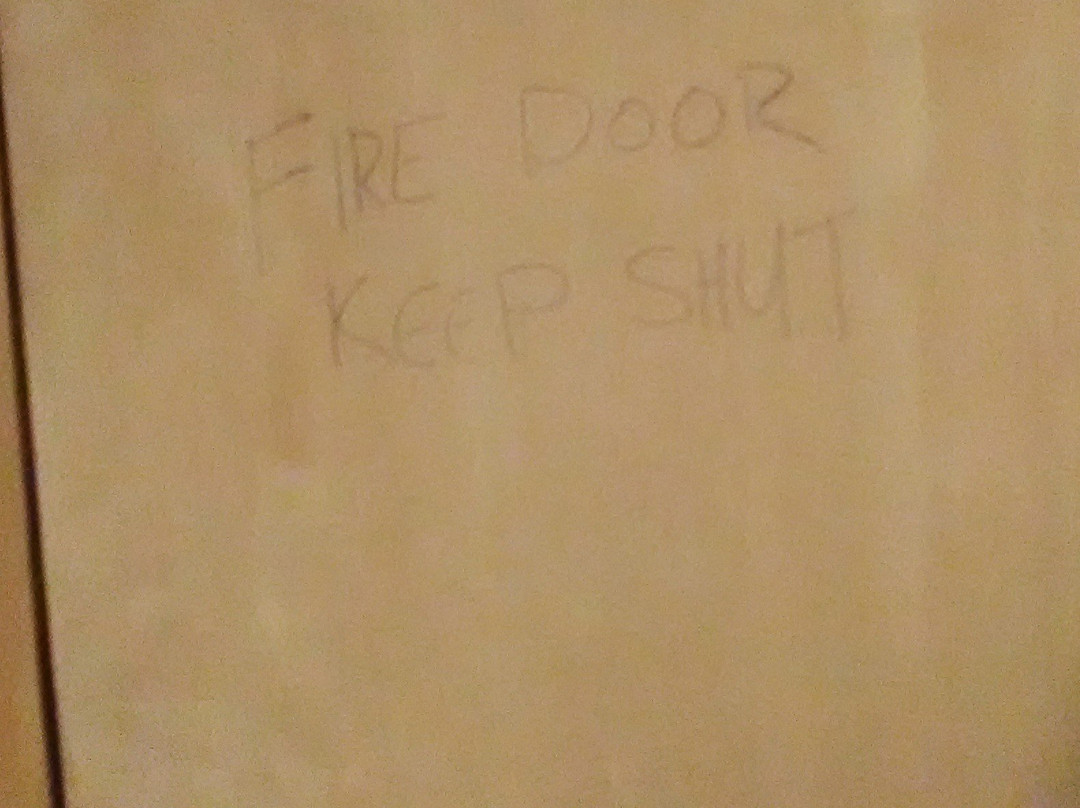 FIRE DOOR
KEEP SHUT